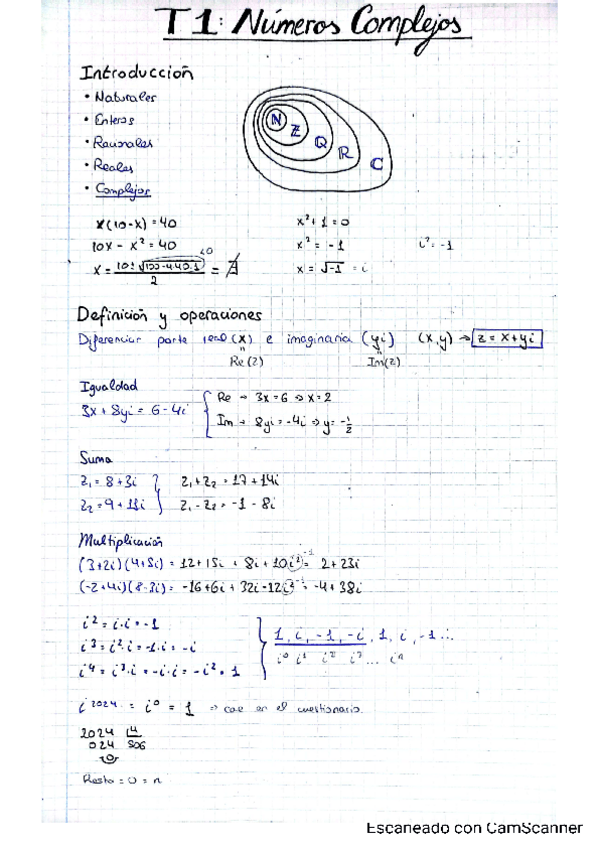 T1: Números Complejos
Introducción
• Naturales
• Enteros
• Racionales
• Reales
• Complejos
N Z Q R C
x(10-x) = 40
10x - x² = 40
x = 10±√100-4·40·1 / 2 = ∄
<0
x²+1=0
x² = -1
x = √-1 = i
i² = -1
Definición y operaciones
Diferenciar parte real (x) e imaginaria (yi) (x,y) → z = x+yi
Re(z) Im(z)
Igualdad
3x + 8yi = 6 - 4i
Re → 3x = 6 ⇒ x = 2
Im → 8yi = -4i ⇒ y = -1/2
Suma
z₁ = 8+3i
z₂ = 9+11i
z₁+z₂ = 17+14i
z₁-z₂ = -1-8i
Multiplicación
(3+2i)(4+5i) = 12+15i+8i+10i² = 2+23i
-1
(-2+4i)(8-3i) = -16+6i+32i-12i² = -4+38i
-1
i² = i·i = -1
i³ = i²·i = -1·i = -i
i⁴ = i³·i = -i·i = -i² = 1
1, i, -1, -i, 1, i, -1...
i⁰ i¹ i² i³ ... iⁿ
i²⁰²⁴ = i⁰ = 1 ⇒ cae en el cuestionario.
2024 4
024 506
0
Resto = 0 = n
Escaneado con CamScanner